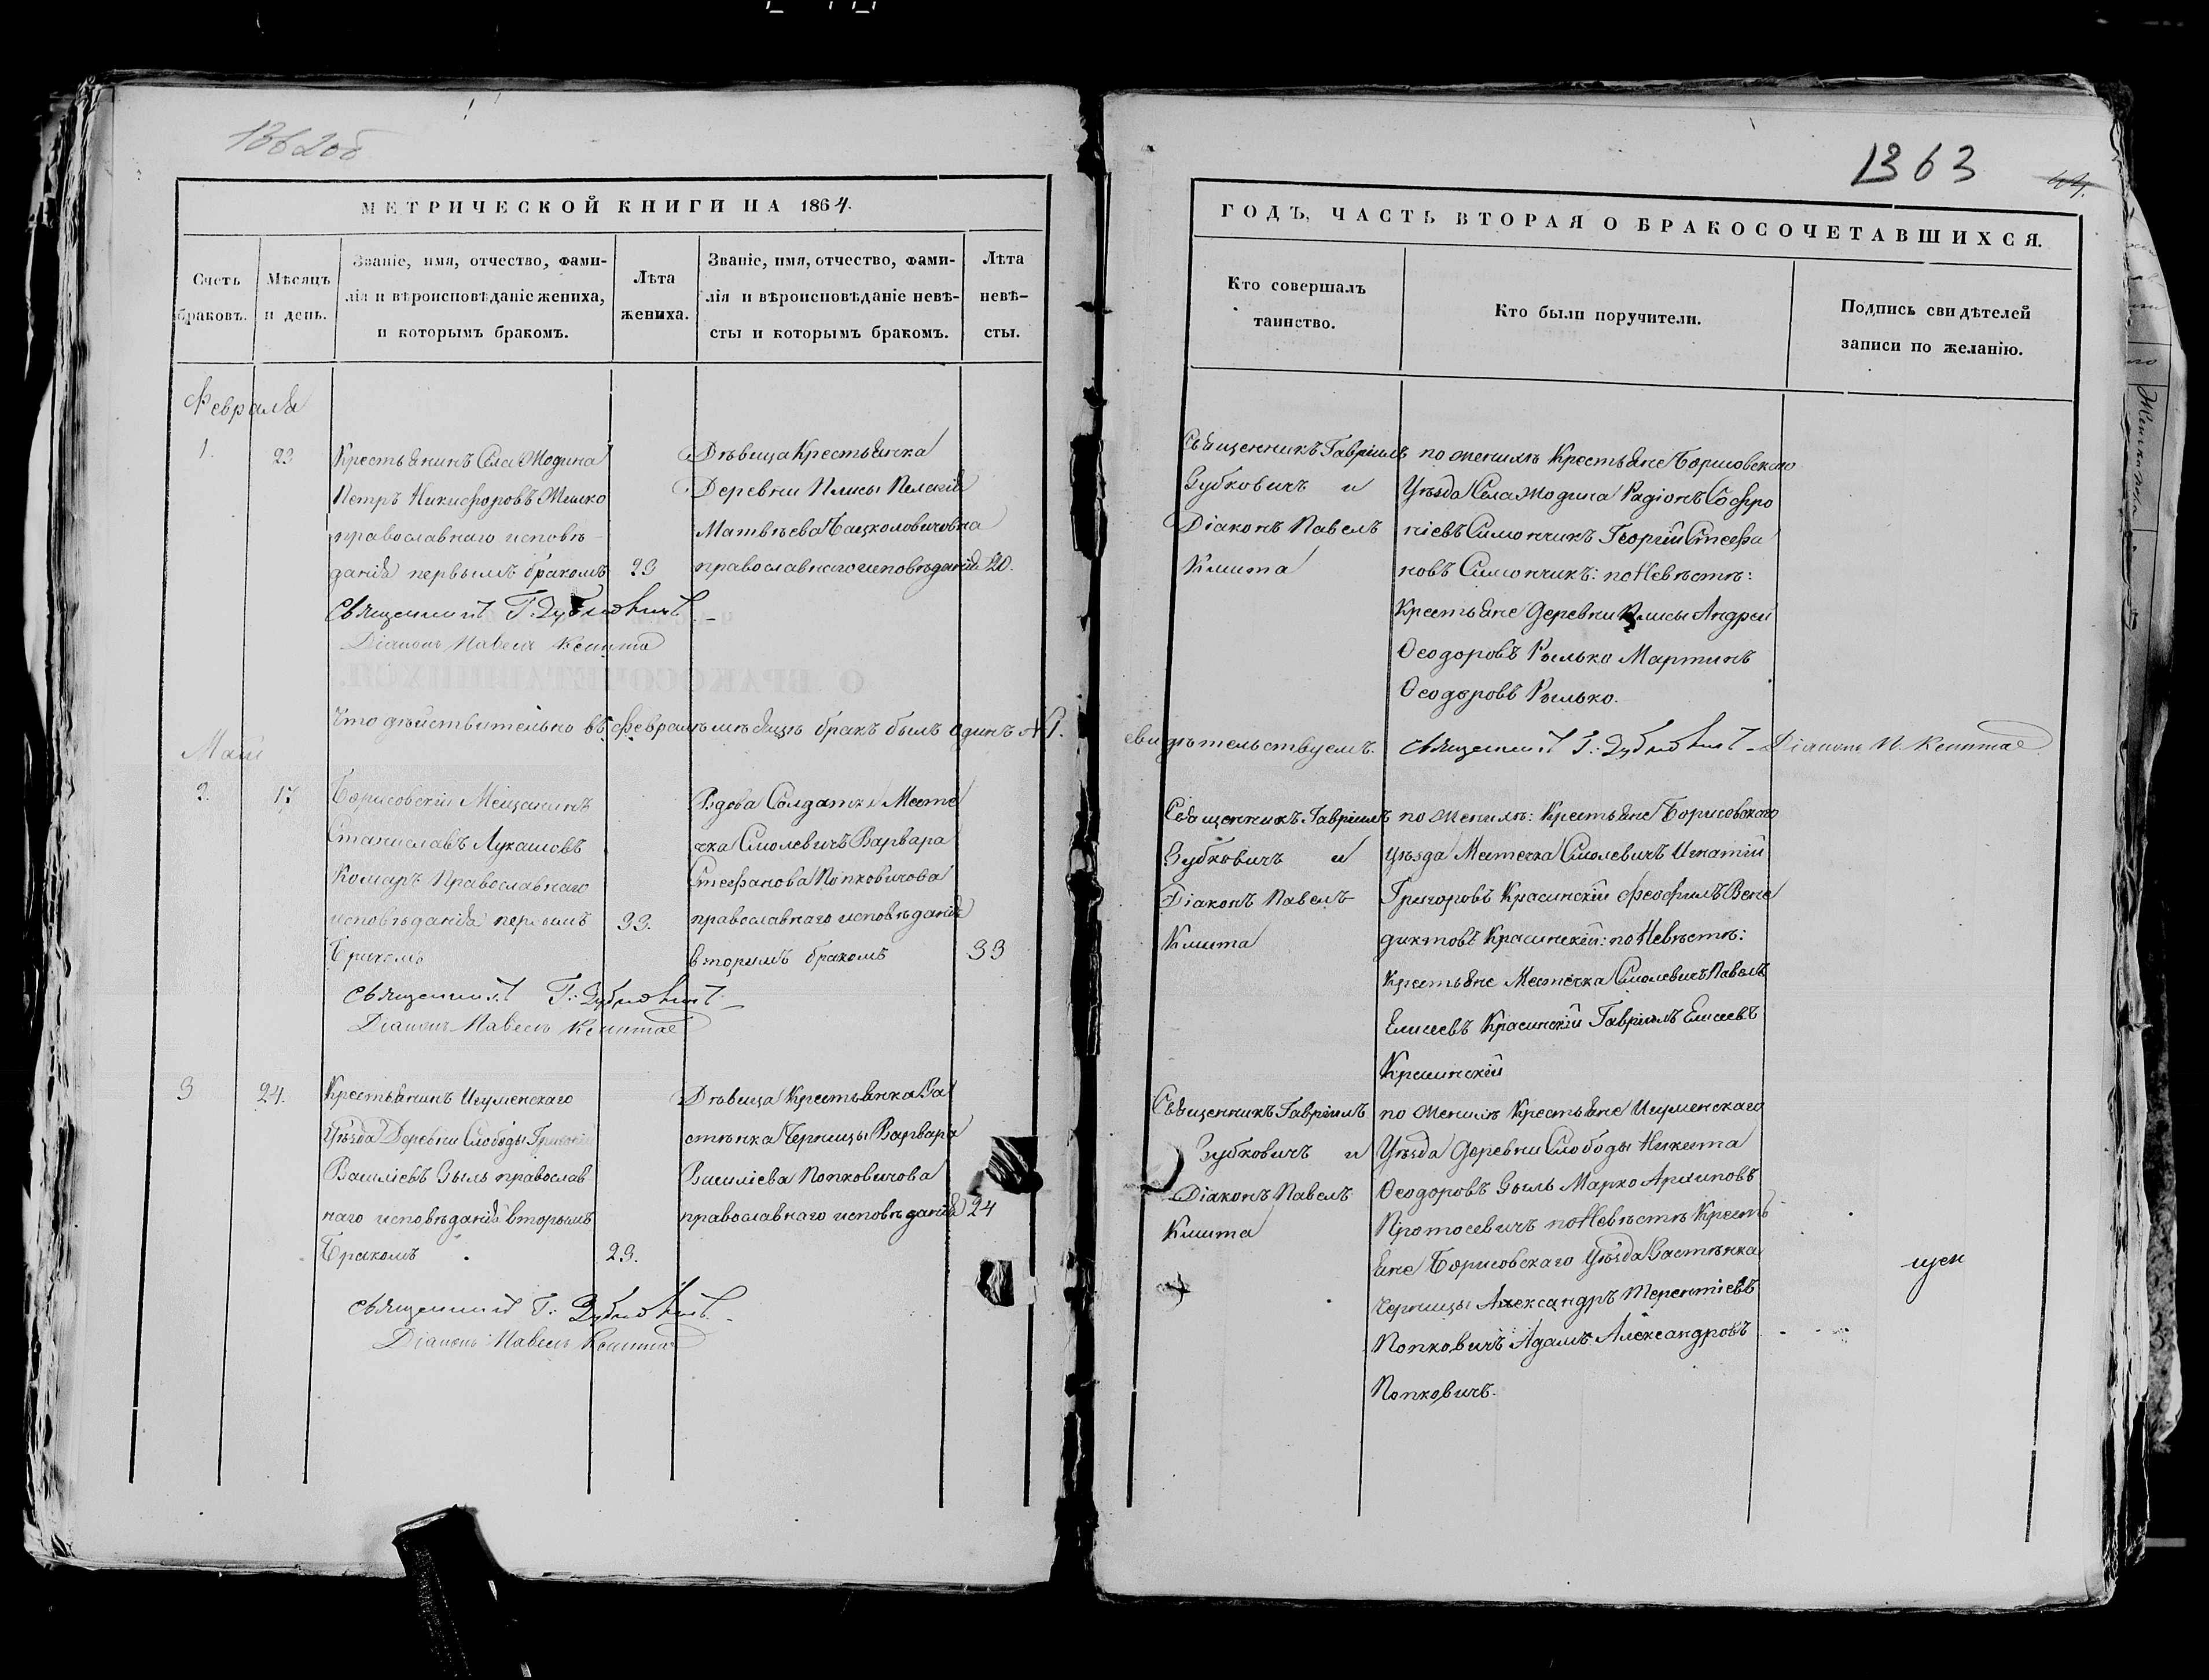 1362об
МЕТРИЧЕСКОЙ КНИГИ НА 1864.
Счетъ браковъ.
Мѣсяцъ и день.
Званіе, имя, отчество, фами-
лія и вѣроисповѣданіе жениха,
и которымъ бракомъ.
Лѣта
жениха.
Званіе, имя, отчество, фами-
лія и вѣроисповѣданіе невѣ-
сты и которымъ бракомъ.
Лѣта
невѣ-
сты.
Февраля
1.
23
Крестьянинъ Села Жодина
Петръ Никифоровъ
православнаго исповѣ-
данія первымъ бракомъ
23
Священникъ Г. Зубковичъ
Діаконъ Павелъ Кмита
Дѣвица Крестьянка
Деревни Плисы Пелагія
Матвѣева
православнаго исповѣданія
20.
Что дѣйствительно въ февралѣ мѣсяцѣ бракъ былъ одинъ №1.
Май
2.
17
Борисовскій Мещанинъ
Станиславъ Лукашовъ
Комаръ Православнаго
исповѣданія первымъ
бракомъ
33.
Священникъ Г: Зубковичъ
Діаконъ Павелъ Кмита
Вдова Солдатка Месте
чка Смолевичъ Варвара
Стефанова Попковичова
православнаго исповѣданія
вторымъ бракомъ
33
3
24.
Крестьянинъ Игуменскаго
Уѣзда Деревни Слободы
Василіевъ Зыль православ
наго исповѣданія вторымъ
бракомъ
29.
Священникъ Г: Зубковичъ
Діаконъ Павелъ Кмита
Дѣвица Крестьянка За
стѣнка Черницы Варвара
Василіева Попковичова
православнаго исповѣданія
24
1363
44.
ГОДЪ, ЧАСТЬ ВТОРАЯ О БРАКОСОЧЕТАВШИХСЯ.
Кто совершалъ
таинство.
Кто были поручители.
Подпись свидѣтелей
записи по желанію.
Священникъ Гавріилъ
Зубковичъ и
Діаконъ Павелъ
Кмита
по женихѣ Крестьяне Борисовскаго
Уѣзда Села Жодина Радіонъ Софро
ніевъ Симончикъ Георгій Стефа
новъ Симончикъ: по Невѣстѣ:
Крестьяне Деревни Плисы Андрей
Ѳеодоровъ Рылько Мартинъ
Ѳеодоровъ Рылько.
свидѣтельствуемъ. Священникъ Г: Зубковичъ Діаконъ П. Кмита
Священникъ Гавріилъ
Зубковичъ и
Діаконъ Павелъ
Кмита
по женихѣ: Крестьяне Борисовскаго
Уѣзда Местечка Смолевичъ Игнатій
Григоровъ Красинскій Феофилъ Вене
диктовъ Красинскій: по Невѣстѣ:
Крестьяне Местечка Смолевичъ Павелъ
Елисеевъ Красинскій Гавріилъ Елисеевъ
Красинскій
Священникъ Гавріилъ
Зубковичъ и
Діаконъ Павелъ
Кмита
по женихѣ Крестьяне Игуменскаго
Уѣзда Деревни Слободы Никита
Ѳеодоровъ Зыль Марко Архиповъ
Протосевичъ по Невѣстѣ Кресть
яне Борисовскаго Уѣзда Застѣнка
Черницы Александръ Терентіевъ
Попковичъ Адамъ Александровъ
Попковичъ.
щен